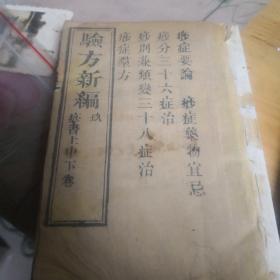 痧症要論　痧症藥物宜忌
痧分三十六症治
痧附兼類變三十八症治
痧症羣方
驗方新編 玖
痧書上中下卷